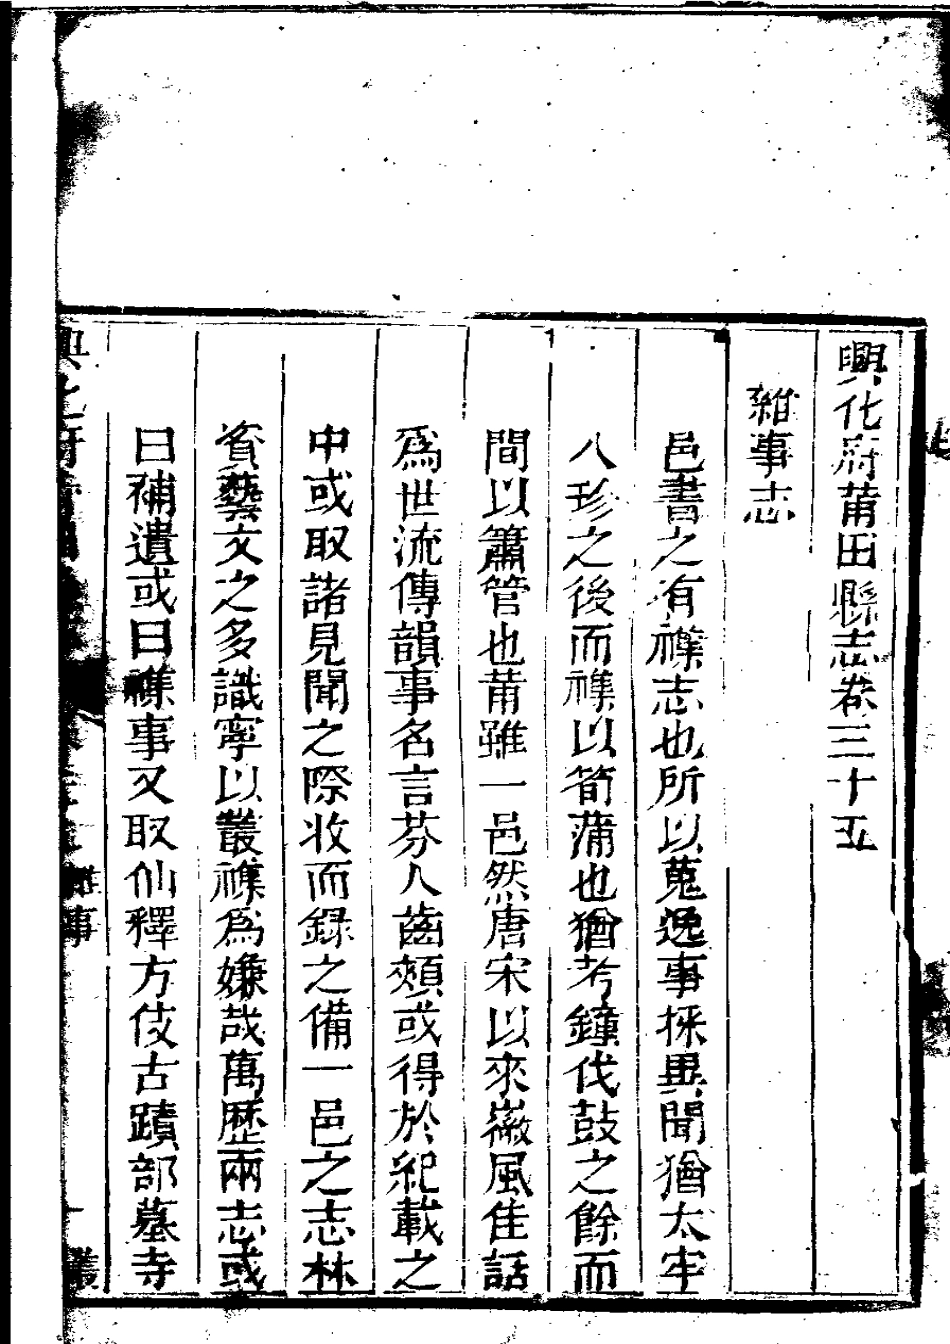 興化府莆田縣志卷三十五
雜事志
邑書之有襍志也所以蒐逸事採異聞猶太牢
八珍之後而襍以筍蒲也猶考鐘伐鼓之餘而
間以簫管也莆雖一邑然唐宋以來徽風佳話
爲世流傳韻事名言芬人齒頰或得於紀載之
中或取諸見聞之際收而録之備一邑之志林
資藝文之多識寧以叢襍爲嫌哉萬歷兩志或
曰補遺或曰襍事又取仙釋方伎古蹟部墓寺
雜事